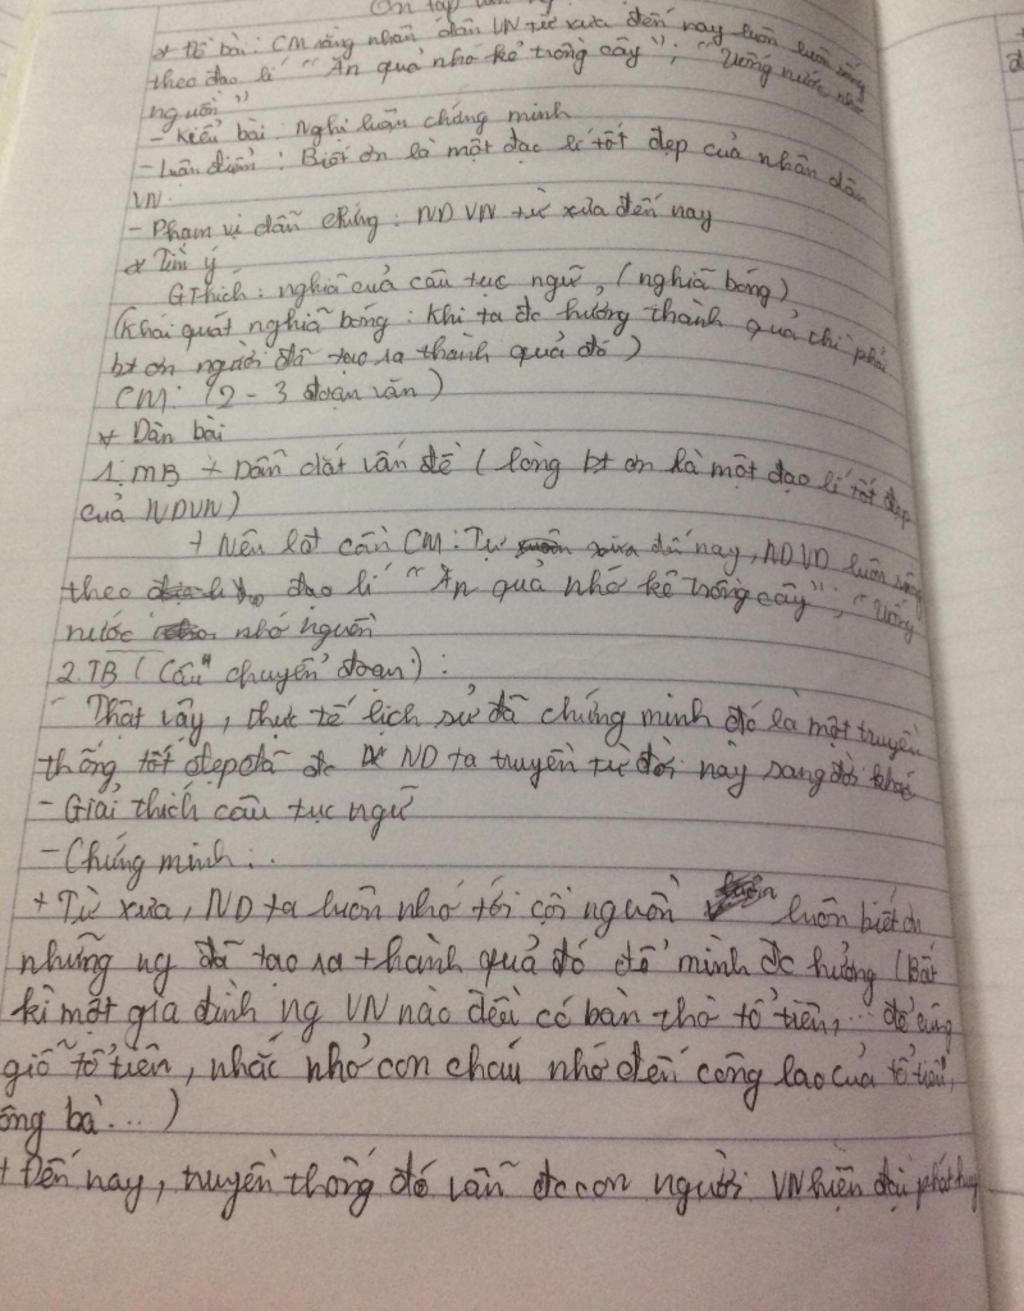 Ôn tập
* Đề bài: CM rằng nhân dân VN từ xưa đến nay luôn luôn sống
theo đạo lí "Ăn quả nhớ kẻ trồng cây"; "Uống nước nhớ
nguồn"
- Kiểu bài: Nghị luận chứng minh
- Luận điểm: Biết ơn là một đạo lí tốt đẹp của nhân dân
VN.
- Phạm vi dẫn chứng: ND VN từ xưa đến nay
* Tìm ý
GThích: nghĩa của câu tục ngữ, (nghĩa bóng)
(Khái quát nghĩa bóng: Khi ta đc hưởng thành quả thì phải
bt ơn người đã tạo ra thành quả đó)
CM: (2 - 3 đoạn văn)
* Dàn bài
1. MB + Dẫn dắt vấn đề (lòng bt ơn là một đạo lí tốt đẹp
của NDVN)
+ Nêu lđt cần CM: Từ xưa đến nay, ND VD luôn sống
theo đạo lí "Ăn quả nhớ kẻ trồng cây"; "Uống
nước nhớ nguồn
2. TB (Câu " chuyển đoạn):
- Thật vậy, thực tế lịch sử đã chứng minh đó là một truyền
thống tốt đẹp đã đc ND ta truyền từ đời này sang đời khác
- Giải thích câu tục ngữ
- Chứng minh:
+ Từ xưa, ND ta luôn nhớ tới cội nguồn luôn biết ơn
những ng đã tạo ra thành quả đó để mình đc hưởng (Bất
kì một gia đình ng VN nào đều có bàn thờ tổ tiên, ... để cúng
giỗ tổ tiên, nhắc nhở con cháu nhớ đến công lao của tổ tiên,
ông bà...)
+ Đến nay, truyền thống đó vẫn đc con người VN hiện đại phát huy